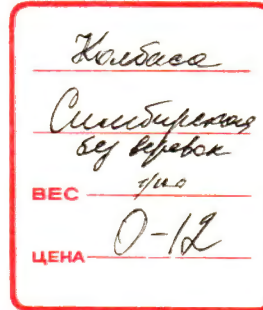 Колбаса
Симбирская
без веревок
ВЕС
ЦЕНА 0-12